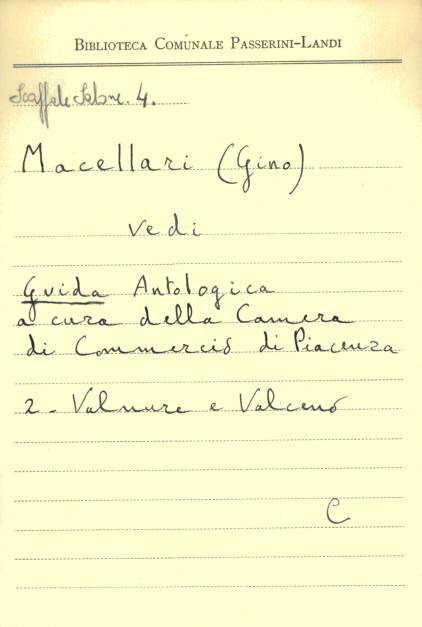 BIBLIOTECA COMUNALE PASSERINI-LANDI
Scaffale Salone. 4.
Macellari (Gino)
vedi
Guida Antologica
a cura della Camera
di Commercio di Piacenza
2 - Valnure e Valceno
C